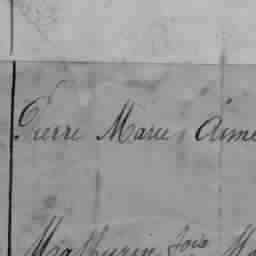 Pierre Marie, Aimé
Mathurin fois